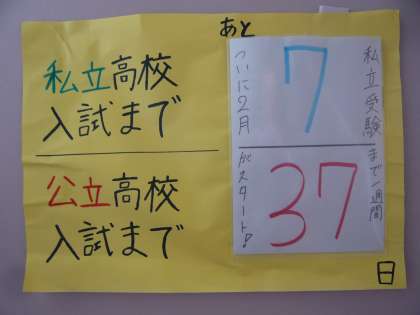 あと
私立高校
入試まで
7
公立高校
入試まで
37
日
私立受験まで一週間
ついに2月がスタート!